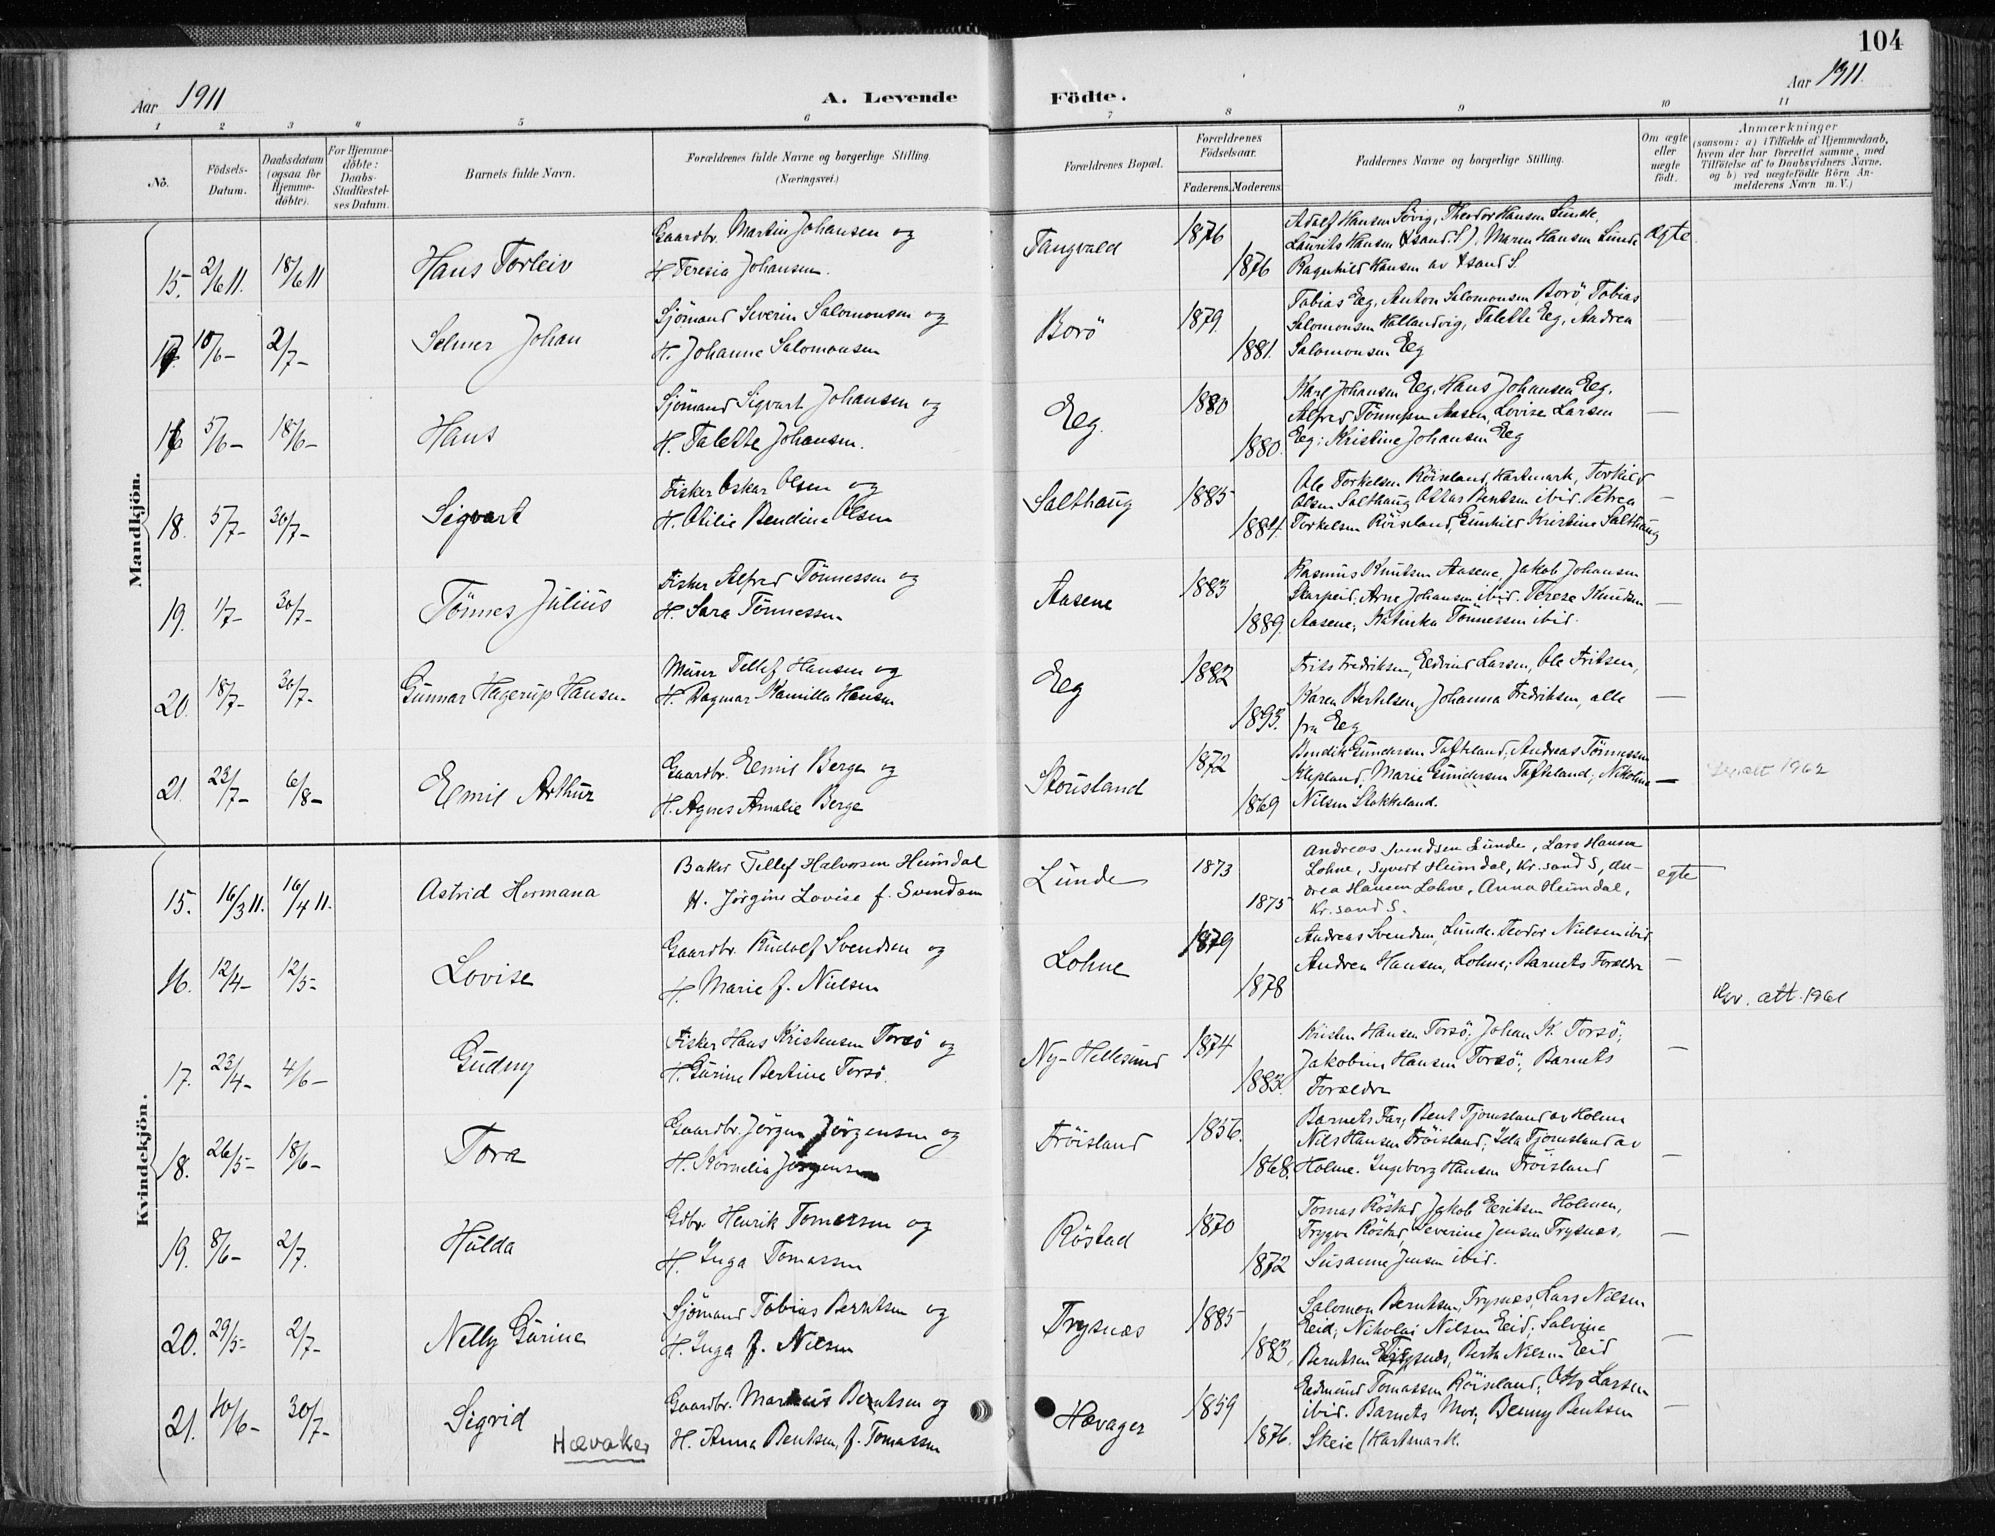 104
Aar 1911
A. Levende Födte.
Aar 1911
1 2 3 4 5 6 7 8 9 10 11
No.
Födsels-Datum.
Daabsdatum (ogsaa for Hjemme-döbte).
For Hjemme-döbte: Daabs-Stadfæstel-ses Datum.
Barnets fulde Navn.
Forældrenes fulde Navne og borgerlige Stilling. (Næringsvei.)
Forældrenes Bopæl.
Forældrenes Födselsaar.
Faderens. Moderens.
Faddernes Navne og borgerlige Stilling.
Om ægte eller uægte födt.
Anmærkninger
(saasom: a) i Tilfælde af Hjemmedaab,
hvem der har forrettet samme, med
Tilföielse af to Daabsvidners Navne.
og b) ved uægtefödte Börn An-
melderens Navn m. V.)
Mandkjön.
15. 2/6 11. 18/6 11 Hans Torleiv
Gaardbr. Martin Johansen og
H. Teresia Johansen.
Tangvald 1876 1876
Adolf Hansen Søvig, Theodor Hansen Lunde,
Laurits Hansen (Xsand. S), Maren Hansen Lunde
Ragnhild Hansen av Xsand S.
ægte
17. 10/6 - 2/7 - Selmer Johan
Sjömand Severin Salomonsen og
H. Johanne Salomonsen
Borö 1879 1881.
Tobias Eeg, Anton Salomonsen Borö, Tobias
Salomonsen Hallandvig, Talette Eeg, Andrea
Salomonsen Eeg
—
16 5/6 - 18/6 - Hans
Sjömand Sigvart Johansen og
H. Talette Johansen.
Eeg. 1880 1880.
Karl Johansen Eeg, Hans Johansen Eeg,
Alfred Tönnessen Aasen, Lovise Larsen
Eeg; Kristine Johansen Eeg
—
18. 5/7 - 30/7 - Sigvart
Fisker Oskar Olsen og
H. Otilie Bendine Olsen
Salthaug 1885 1884.
Ole Torkelsen Röisland, Hartmark, Torkild
Olsen Salthaug Oskar Bentsen ibid. Petrea
Torkelsen Röisland, Gunhild Kristine Salthaug
—
19. 1/7 - 30/7 - Tönnes Julius
Fisker Alfred Tönnessen og
H. Sara Tönnessen
Aasene 1883 1889.
Rasmus Knutsen Aasene, Jakob Johansen
Skarpeid; Arne Johansen ibid. Terese Knudsen
Aasene; Katinka Tönnessen ibid.
—
20. 18/7 - 30/7 - Gunnar Hagerup Hansen
Murer Tellef Hansen og
H. Dagmar Kamilla Hansen
Eeg 1882 1893.
Frits Fredriksen, Edvind Larsen, Ole Fritsen,
Karen Bertelsen, Johanna Fredriksen, alle
fra Eeg
—
21. 23/7 - 6/8 - Emil Arthur
Gaardbr. Emil Berge og
H. Agnes Amalie Berge
Stousland 1872 1869
Bendik Gundersen Tofteland, Andreas Tönnessen
Klepland, Marie Gundersen Tofteland;
Nilsen Stokkeland.
— att 1962
Kvindekjön.
15. 16/3 11. 16/4 11. Astrid Hermana
Baker Tellef Halvorsen Heimdal
H. Jörgine Lovise f. Svendsen
Lunde 1873 1875
Andreas Svendsen Lunde, Lars Hansen
Lohne, Syvert Heimdal, Kr. sand S, An-
drea Hansen Lohne, Anna Heimdal,
Kr. sand S.
egte
16. 12/4 - 12/5 - Lovise
Gaardbr. Rudolf Svendsen og
H. Marie f. Nielsen
Lohne 1879 1878
Andreas Svendsen, Lunde. Teodor Nielsen ibid
Andrea Hansen, Lohne; Barnets Foreldre
—
att. 1961
17. 23/4 - 4/6 - Gudny
Fisker Hans Kristensen Torsö og
H. Gurine Bertine Torsö.
Ny-Hellesund 1874 1883.
Kristen Hansen Torsö; Johan K. Torsö;
Jakobine Hansen Torsö; Barnets
Foreldre
—
18. 26/5 - 18/6 - Tora
Gaardbr. Jörgen Jörgensen og
H. Kornelia Jörgensen
Fröisland 1856. 1868.
Barnets Far; Bent Tjomsland av Holme
Nils Hansen Fröisland; Ida Tjomsland av
Holme. Ingeborg Hansen Fröisland
—
19. 8/6 - 2/7. Hulda
Gdbr. Henrik Tomassen og
H. Inga Tomassen
Röstad 1870 1872
Tomas Röstad, Jakob Eriksen Holmen,
Trygve Röstad, Severine Jensen Trysnæs,
Susanne Jensen ibid.
—
20. 29/5 - 2/7 - Nelly Gurine
Sjömand Tobias Berntsen og
H. Inga f. Nilsen
Trysnæs 1885 1883.
Salomon Berntsen, Trysnæs, Lars Nilsen
Eeid; Nikolai Nilsen Eeid; Salvine
Berntsen Trysnæs, Berta Nilsen Eeid
—
21. 10/6 - 30/7 - Sigrid
Hævaker
Gaardbr. Markus Bentsen og
H. Anna Bentsen, f. Tomassen
Hævager 1859 1876.
Edmund Tomassen Röisland; Otto Larsen
ibid. Barnets Mor; Benny Bentsen
Skeie (Hartmark.
—